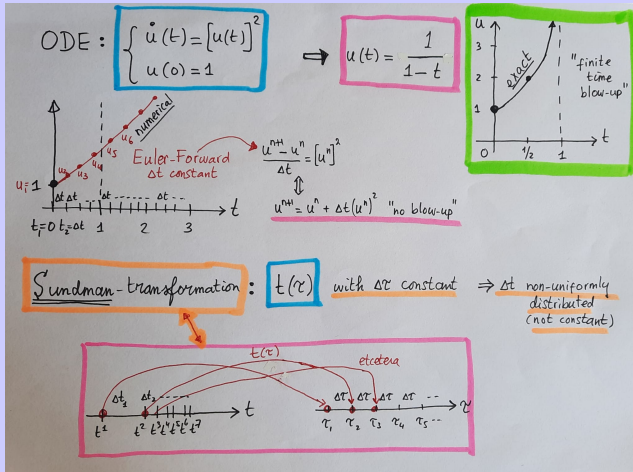 ODE : { u̇(t) = [u(t)]²
u(0) = 1
⇒ u(t) = 1 / (1 - t)
u
3
2
1
0 1/2 1 t
exact
"finite
time
blow-up"
numerical
u₂ u₃ u₄ u₅ u₆
u₁ = 1
Δt Δt .... Δt ...... Δt ...
t₁=0 t₂=Δt 1 2 3 t
Euler-Forward
Δt constant
(uⁿ⁺¹ - uⁿ) / Δt = [uⁿ]²
⇕
uⁿ⁺¹ = uⁿ + Δt(uⁿ)² "no blow-up"
Sundman-transformation : t(τ) with Δτ constant ⇒ Δt non-uniformly
distributed
(not constant)
t(τ)
etcetera
Δt₁ Δt₂ ------
t¹ t² t³ t⁴ t⁵ t⁶ t⁷ t
Δτ Δτ Δτ Δτ --
τ₁ τ₂ τ₃ τ₄ τ₅ -- τ